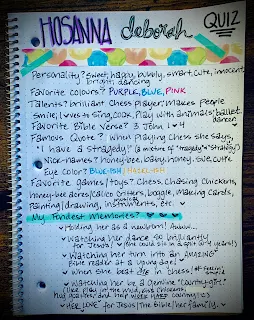 HOSANNA deborah QUIZ
Personality? Sweet, happy, bubbly, smart, cute, innocent
bright, dancing
Favorite colours? PURPLE, BLUE, PINK
Talents? brilliant Chess player, makes People
smile, loves to sing, cook, Play with animals, ballet
dancer
Favorite Bible Verse? 3 John 1:4
Famous Quote? When Playing Chess she says,
"I have a stradegy!" (a mixture of
Nick-names? honey-bee, baby, honey,
Eye color? BLUE-ISH / HAZEL-ISH
Favorite games/toys? Chess, Chasing Chickens,
honey-bee acres/Calico Critters, Google, Making Cards,
Painting/drawing, instruments, etc.
My Fondest Memories?
Holding her as a newborn!
Watching her dance so brilliantly
for Jesus!
Watching her turn into an AMAZING
Bible reader at a young age
When she beat me in Chess!
Watching her be a genuine "Country-girl"
(like play in the mud, kiss chickens,
hug goats and help work HARD
Her LOVE for Jesus/The Bible/her family.